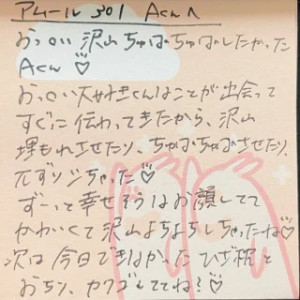 アムール 301 Aくんへ
おっぱい沢山ちゅぱちゅぱしたかった
Aくん♡
おっぱい大好きくんなことが出会って
すぐに伝わってきたから、沢山
埋もれさせたり、ちゅぱちゅぱさせたり、
パズリしちゃった♡
ずーっと幸せそうなお顔してて
かわいくて沢山よちよちしちゃったね♡
次は今日できなかったひざ枕と
おちり、カクゴしててね?♡